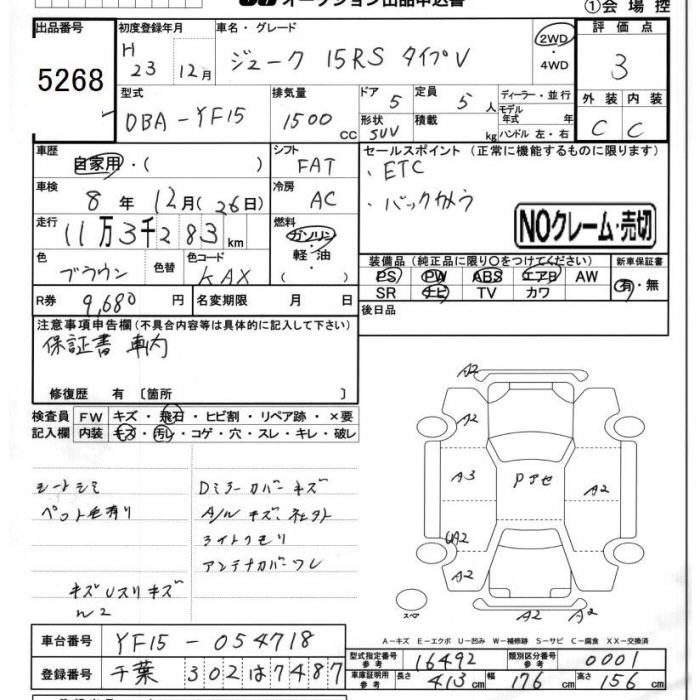 オークション出品申込書
①会場控
出品番号 5268
初度登録年月 H 23 12月
車名・グレード ジューク 15RS タイプV
2WD・4WD
評価点 3
外装 C 内装 C
型式 DBA-YF15
排気量 1500 CC
ドア 5
定員 5人
ディーラー・並行
形状 SUV
積載 kg
モデル年式 年
ハンドル 左・右
車歴 自家用・( )
シフト FAT
セールスポイント (正常に機能するものに限ります)
・ETC
・バックカメラ
車検 8年 12月(26日)
冷房 AC
NOクレーム・売切
走行 11万3千283km
燃料 ガソリン・軽油 ( )
色 ブラウン
色替
色コード KAX
装備品 (純正品に限り○をつけてください)
新車保証書 有・無
PS PW ABS エアB AW
SR ナビ TV カワ
R券 9,680円
名変期限 月 日
後日品
注意事項申告欄(不具合内容等は具体的に記入して下さい)
保証書 車内
修復歴 有 〔箇所 〕
検査員記入欄
FW キズ・飛石・ヒビ割・リペア跡・×要
内装 キズ・汚レ・コゲ・穴・スレ・キレ・破レ
シートシミ
ペット毛有り
Dミラーカバーキズ
A/Wキズ、
ライトクモリ
アンテナカバーワレ
キズUスリキズ
A2
A2
A3
Pアセ
A2
UA2
A2
A2
A2
スペア
A-キズ E-エクボ U-凹み W-補修跡 S-サビ C-腐食 XX-交換済
車台番号 YF15-054718
登録番号 千葉 302 は 7487
型式指定番号 参考 16492
類別区分番号 参考 0001
車庫証明用 参考 長さ 413cm 幅 176cm 高さ 156cm